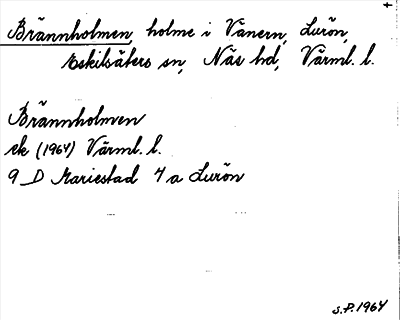 Brännholmen, holme i Vänern, Lurön,
Eskilsäters sn, Näs hd, Värml. l.
Brännholmen
ek (1964) Värml. l.
9 D Mariestad 7 a Lurön
S.P. 1964